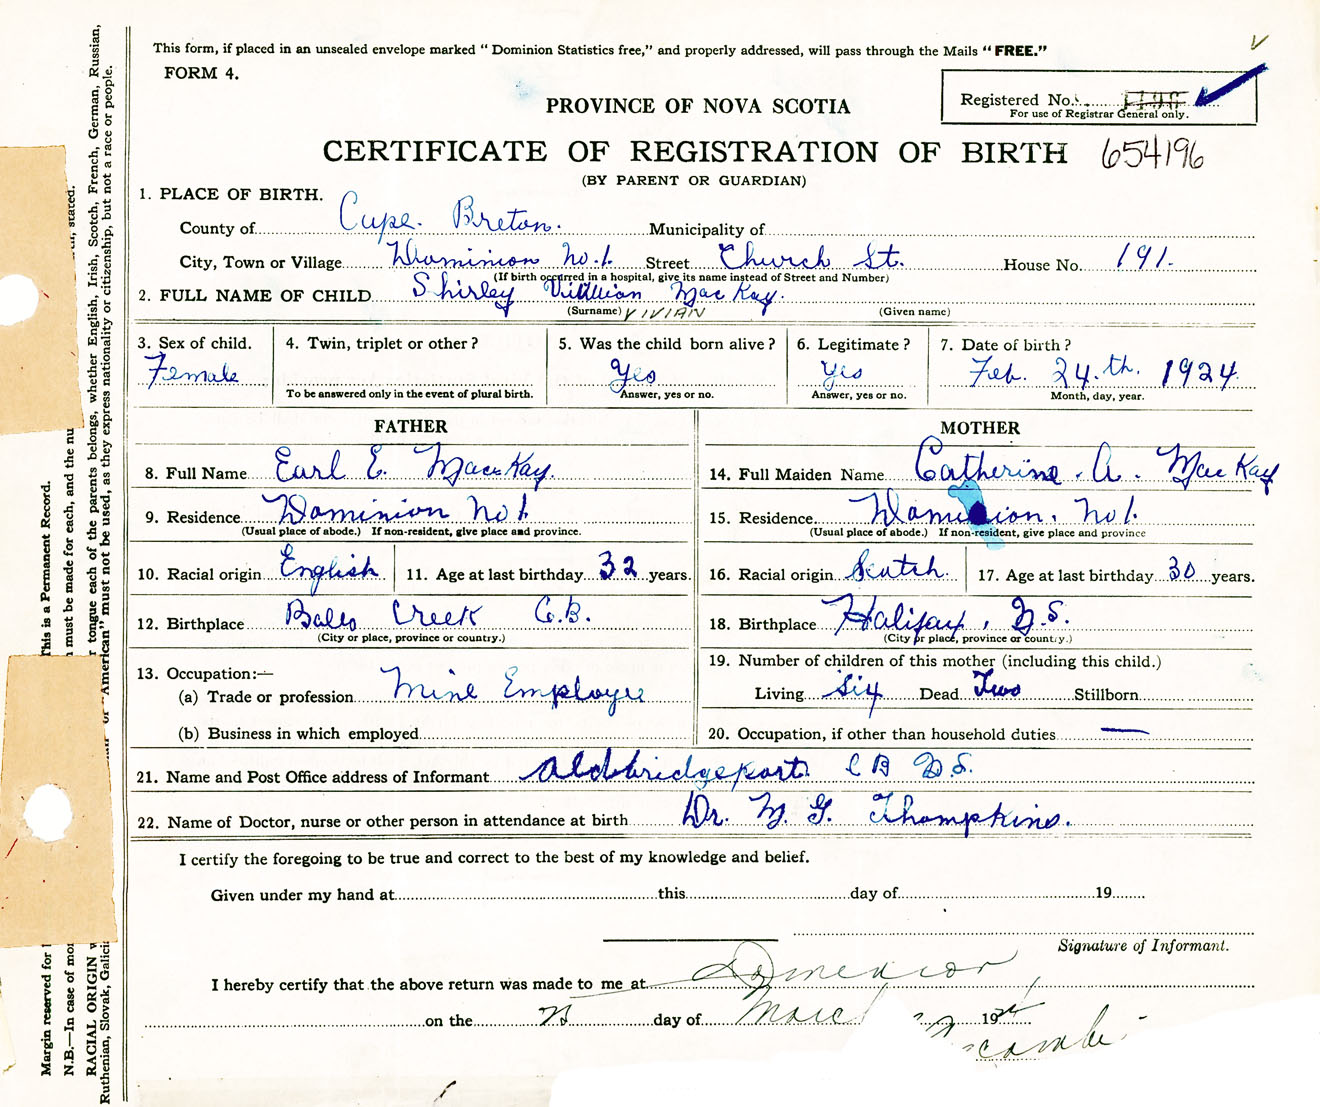 This form, if placed in an unsealed envelope marked “ Dominion Statistics free,” and properly addressed, will pass through the Mails “ FREE.”
FORM 4.
PROVINCE OF NOVA SCOTIA
Registered No.
For use of Registrar General only.
CERTIFICATE OF REGISTRATION OF BIRTH 654196
(BY PARENT OR GUARDIAN)
1. PLACE OF BIRTH.
County of Cape Breton. Municipality of
City, Town or Village Dominion No.1. Street Church St. House No. 191.
(If birth occurred in a hospital, give its name instead of Street and Number)
2. FULL NAME OF CHILD Shirley MacKay.
(Surname) VIVIAN (Given name)
3. Sex of child. 4. Twin, triplet or other ? 5. Was the child born alive ? 6. Legitimate ? 7. Date of birth ?
Female Yes Yes Feb. 24.th. 1924
To be answered only in the event of plural birth. Answer, yes or no. Answer, yes or no. Month, day, year.
FATHER MOTHER
8. Full Name Earl E. MacKay. 14. Full Maiden Name Catherine. A. MacKay
9. Residence Dominion No 1. 15. Residence Dominion. No 1.
(Usual place of abode.) If non-resident, give place and province. (Usual place of abode.) If non-resident, give place and province
10. Racial origin English 11. Age at last birthday 32 years. 16. Racial origin Scotch. 17. Age at last birthday 30 years.
12. Birthplace Bales Creek C.B. 18. Birthplace Halifax, N.S.
(City or place, province or country.) (City or place, province or country.)
13. Occupation:— 19. Number of children of this mother (including this child.)
(a) Trade or profession Mine Employee Living Six Dead Two Stillborn
(b) Business in which employed 20. Occupation, if other than household duties —
21. Name and Post Office address of Informant Oldbridgeport C B N.S.
22. Name of Doctor, nurse or other person in attendance at birth Dr. M. G. Thompkins.
I certify the foregoing to be true and correct to the best of my knowledge and belief.
Given under my hand at this day of 19
Signature of Informant.
I hereby certify that the above return was made to me at Dominion
on the day of 19
Margin reserved for
This is a Permanent Record.
N.B.—In case of mor
n must be made for each, and the nu
th, stated.
RACIAL ORIGIN w
r tongue each of the parents belongs, whether English, Irish, Scotch, French, German, Russian,
Ruthenian, Slovak, Galicia
or “American” must not be used, as they express nationality or citizenship, but not a race or people.